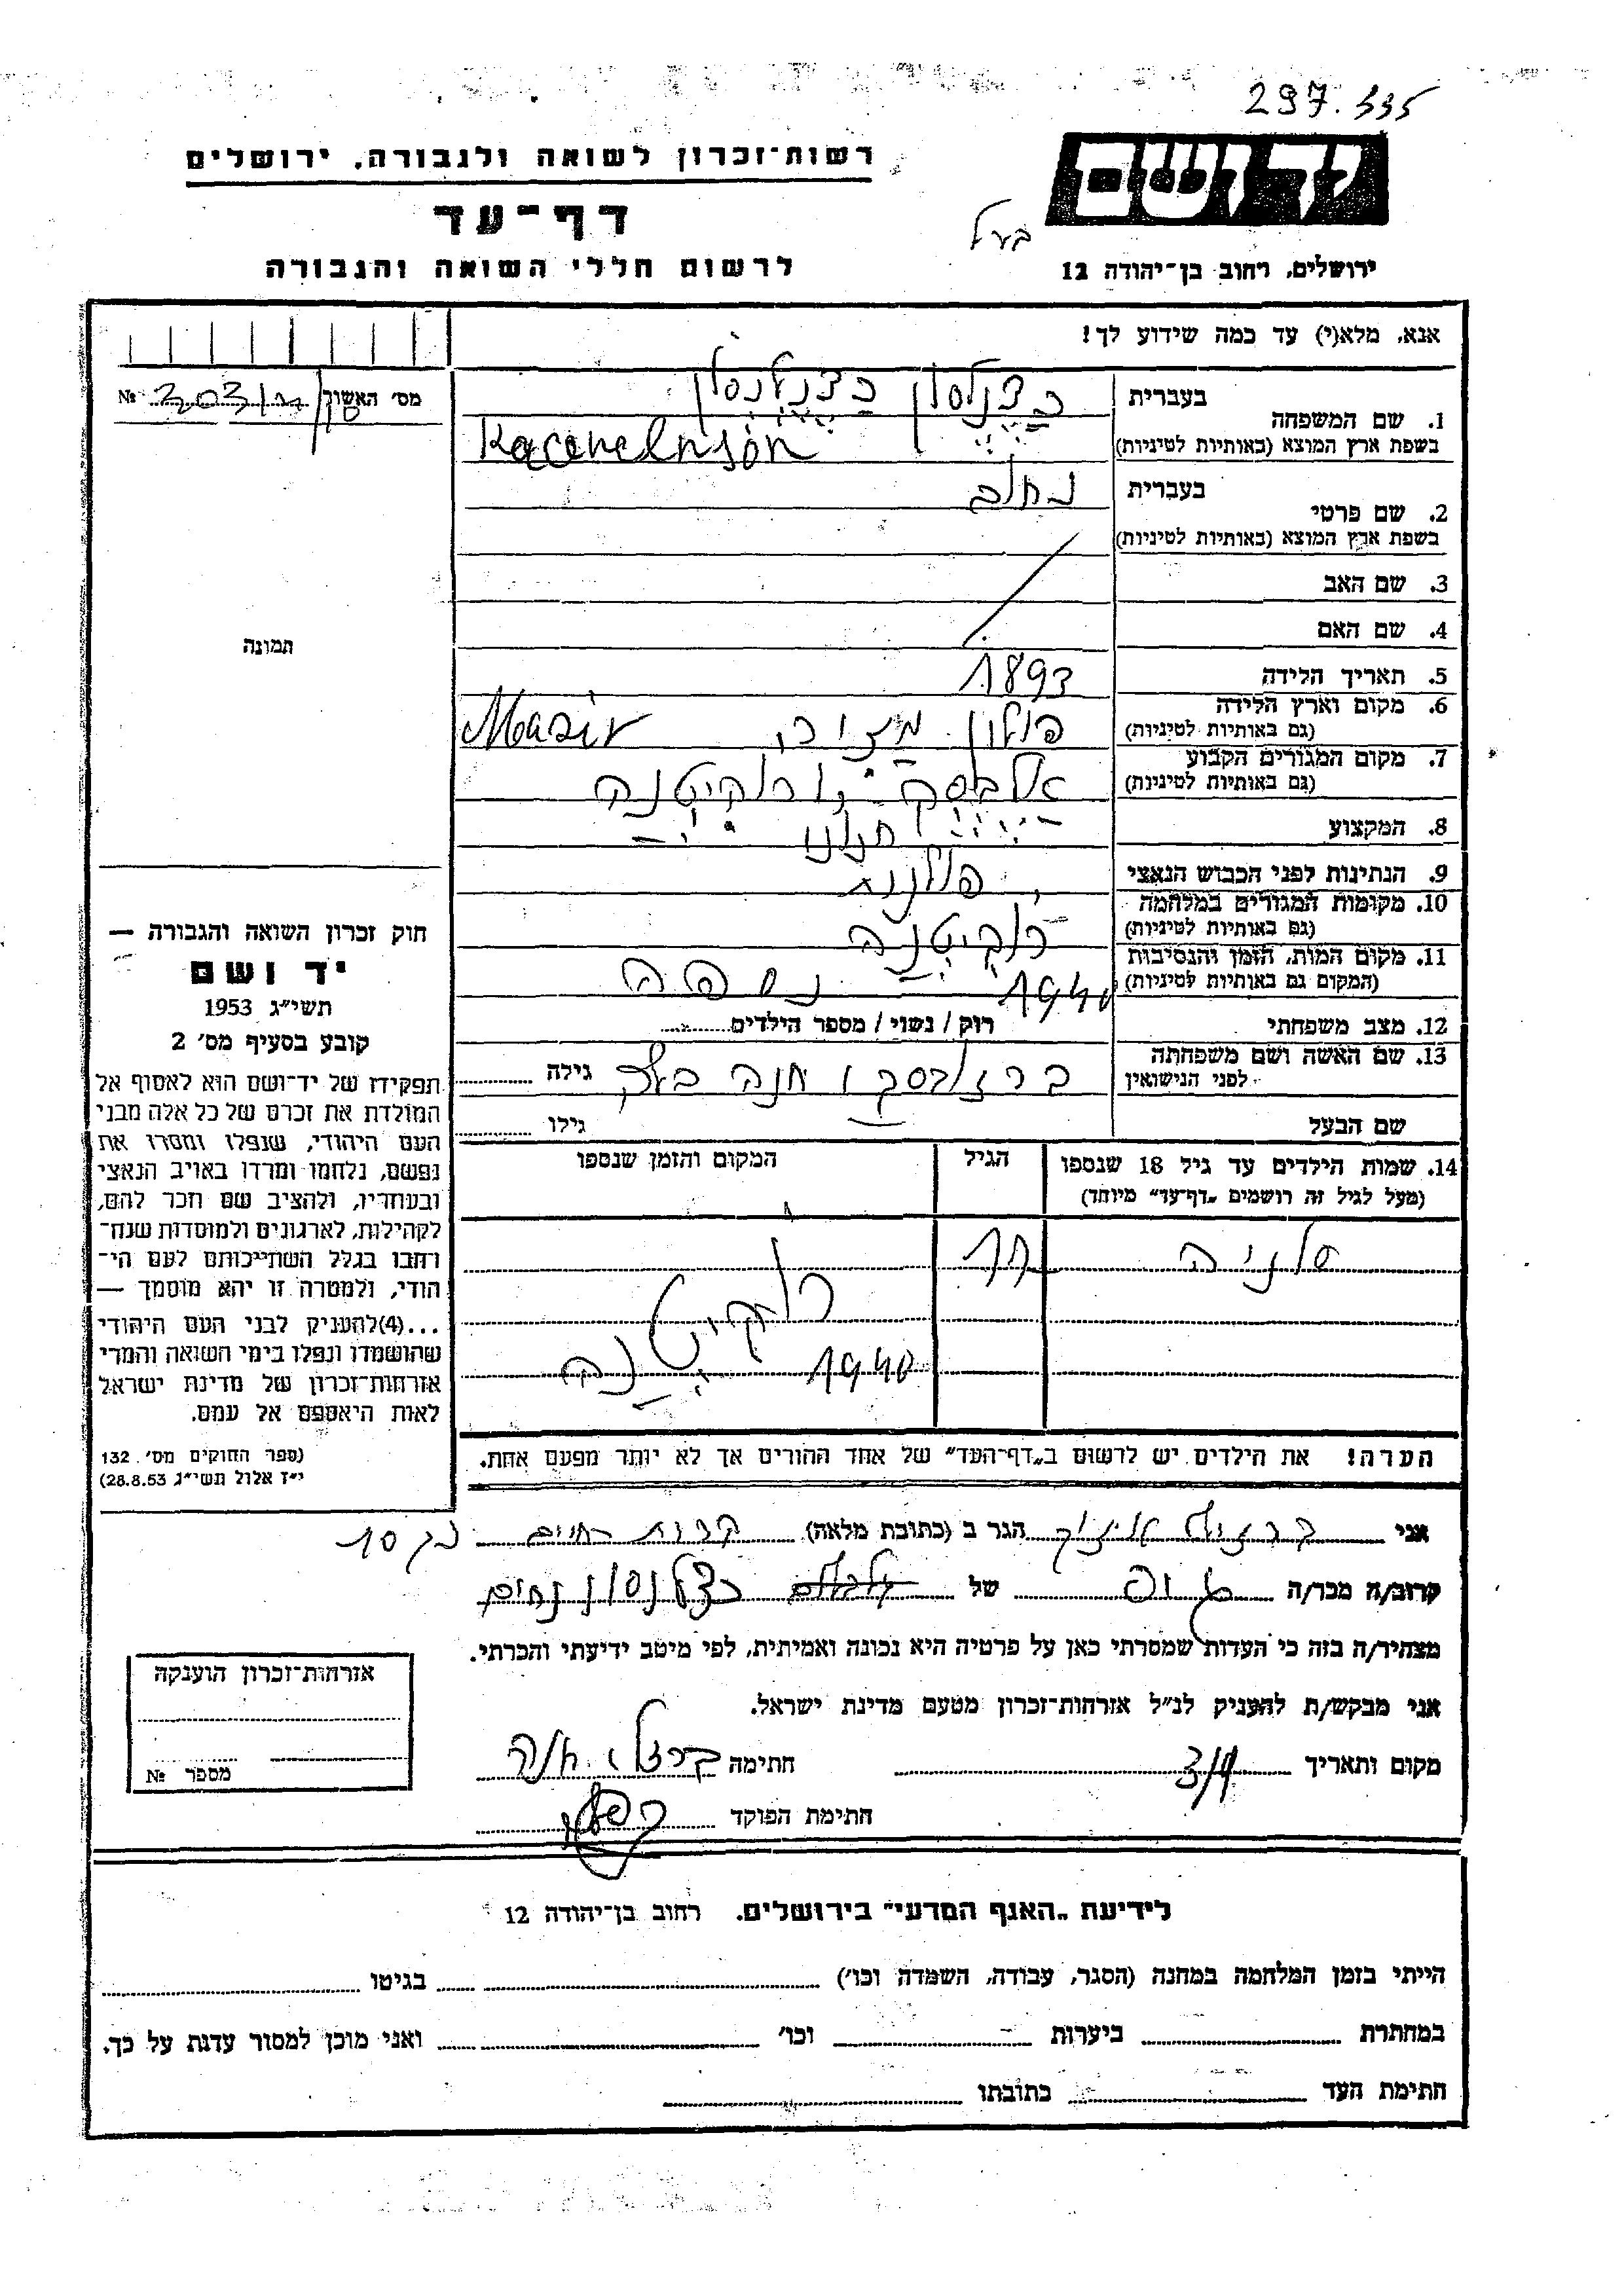 297.335
רשות־זכרון לשואה ולגבורה, ירושלים
יד ושם
דף־עד
בעל
לרשום חללי השואה והגבורה
ירושלים, רחוב בן־יהודה 12
אנא, מלא(י) עד כמה שידוע לך!
מס׳ האשור №
1. שם המשפחה
בעברית כצנלסון כצנלנסון
בשפת ארץ המוצא (באותיות לטיניות) Kacenelnson
2. שם פרטי
בעברית נחום
בשפת ארץ המוצא (באותיות לטיניות)
3. שם האב
4. שם האם
תמונה
5. תאריך הלידה 1893
6. מקום וארץ הלידה
(גם באותיות לטיניות) פולין
7. מקום המגורים הקבוע
(גם באותיות לטיניות) רוקיטנה
8. המקצוע
9. הנתינות לפני הכבוש הנאצי
10. מקומות המגורים במלחמה
(גם באותיות לטיניות) רוקיטנה
11. מקום המות, הזמן והנסיבות
(המקום גם באותיות לטיניות) 1940 נספה
12. מצב משפחתי רוק / נשוי / מספר הילדים
13. שם האשה ושם משפחתה
לפני הנישואין חנה גילה
שם הבעל גילו
14. שמות הילדים עד גיל 18 שנספו
(מעל לגיל זה רושמים „דף־עד” מיוחד)
הגיל
המקום והזמן שנספו
סוניה
רוקיטנה
1940
הערה! את הילדים יש לרשום ב„דף־העד” של אחד ההורים אך לא יותר מפעם אחת.
חוק זכרון השואה והגבורה —
יד ושם
תשי״ג 1953
קובע בסעיף מס׳ 2
תפקידו של יד־ושם הוא לאסוף אל
המולדת את זכרם של כל אלה מבני
העם היהודי, שנפלו ומסרו את
נפשם, נלחמו ומרדו באויב הנאצי
ובעוזריו, ולהציב שם וזכר להם,
לקהילות, לארגונים ולמוסדות שנח־
רבו בגלל השתייכותם לעם הי־
הודי, ולמטרה זו יהא מוסמך —
...(4)להעניק לבני העם היהודי
שהושמדו ונפלו בימי השואה והמרי
אזרחות־זכרון של מדינת ישראל
לאות היאספם אל עמם.
(ספר החוקים מס׳ 132.
י״ז אלול תשי״ג 28.8.53)
אני הגר ב (כתובת מלאה) קרית חיים
קרוב/ה מכר/ה של כצנלנסון נחום
מצהיר/ה בזה כי העדות שמסרתי כאן על פרטיה היא נכונה ואמיתית, לפי מיטב ידיעתי והכרתי.
אני מבקש/ת להעניק לנ״ל אזרחות־זכרון מטעם מדינת ישראל.
מקום ותאריך חתימה
חתימת הפוקד
אזרחות־זכרון הוענקה
מספר №
לידיעת „האגף המדעי” בירושלים, רחוב בן־יהודה 12
הייתי בזמן המלחמה במחנה (הסגר, עבודה, השמדה וכו׳) בגיטו
במחתרת ביערות וכו׳ ואני מוכן למסור עדות על כך.
חתימת העד כתובתו